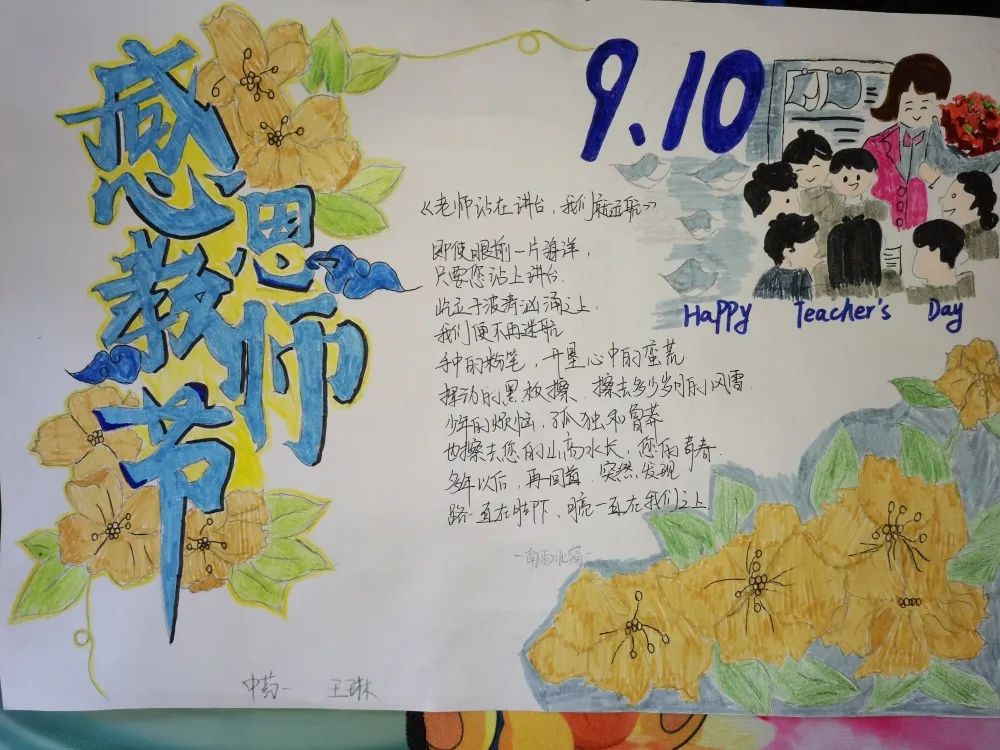 感恩教师节
9.10
Happy Teacher's Day
《老师站在讲台，我们就远航》
即使眼前一片海洋，
只要您站上讲台.
屹立于波涛汹涌之上，
我们便不再迷航
手中的粉笔，开垦心中的蛮荒.
挥动的黑板擦、擦去多少岁月的风雪.
少年的烦恼，孤独和冒莽
也擦去您的山高水长，您的青春.
多年以后，再回首.突然发现
路一直在脚下、光一直在我们之上
中药一 王琳